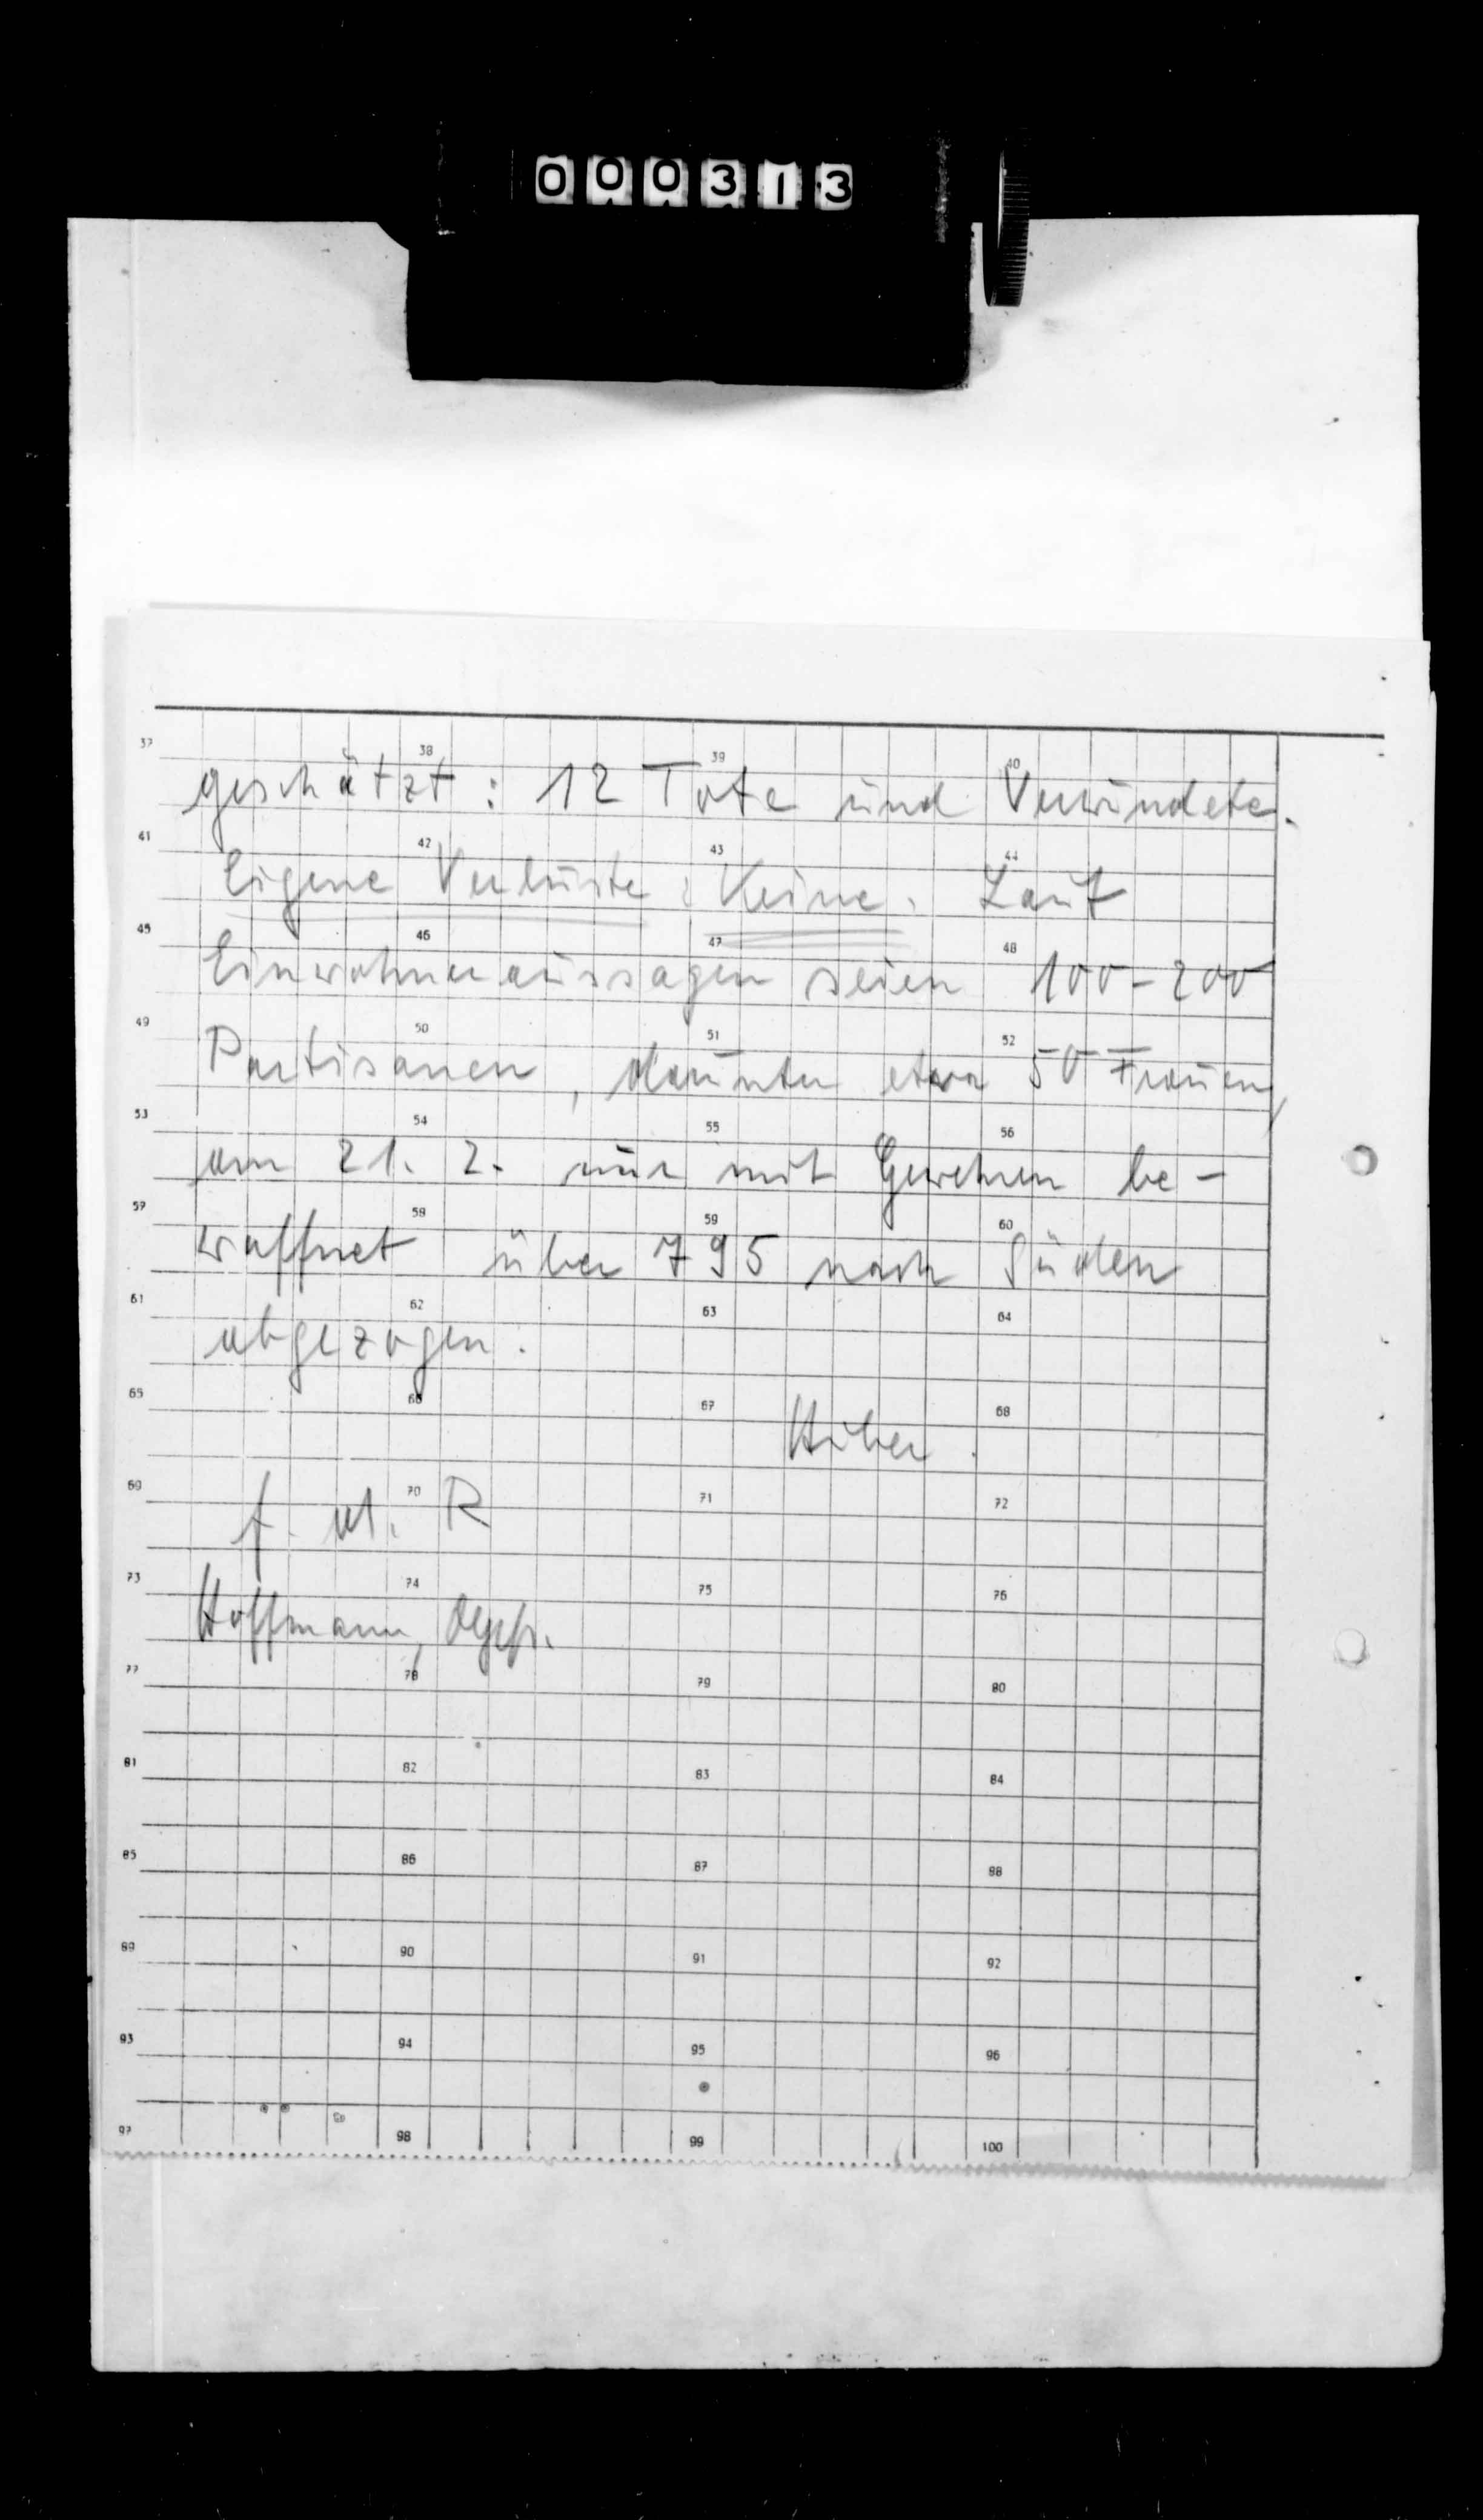 000313
37 38 39 40
geschätzt: 12 Tote und Verwundete.
41 42 43 44
Eigene Verluste: Keine. Laut
45 46 47 48
Einwohneraussagen seien 100-200
49 50 51 52
Partisanen, darunter etwa 50 Frauen,
53 54 55 56
am 21. 2. nur mit Gewehren be-
57 58 59 60
waffnet über 795 nach Süden
61 62 63 64
abgezogen.
65 66 67 68
Huber.
69 70 71 72
f. d. R
73 74 75 76
Hoffmann, Ogefr.
77 78 79 80
81 82 83 84
85 86 87 88
89 90 91 92
93 94 95 96
97 98 99 100